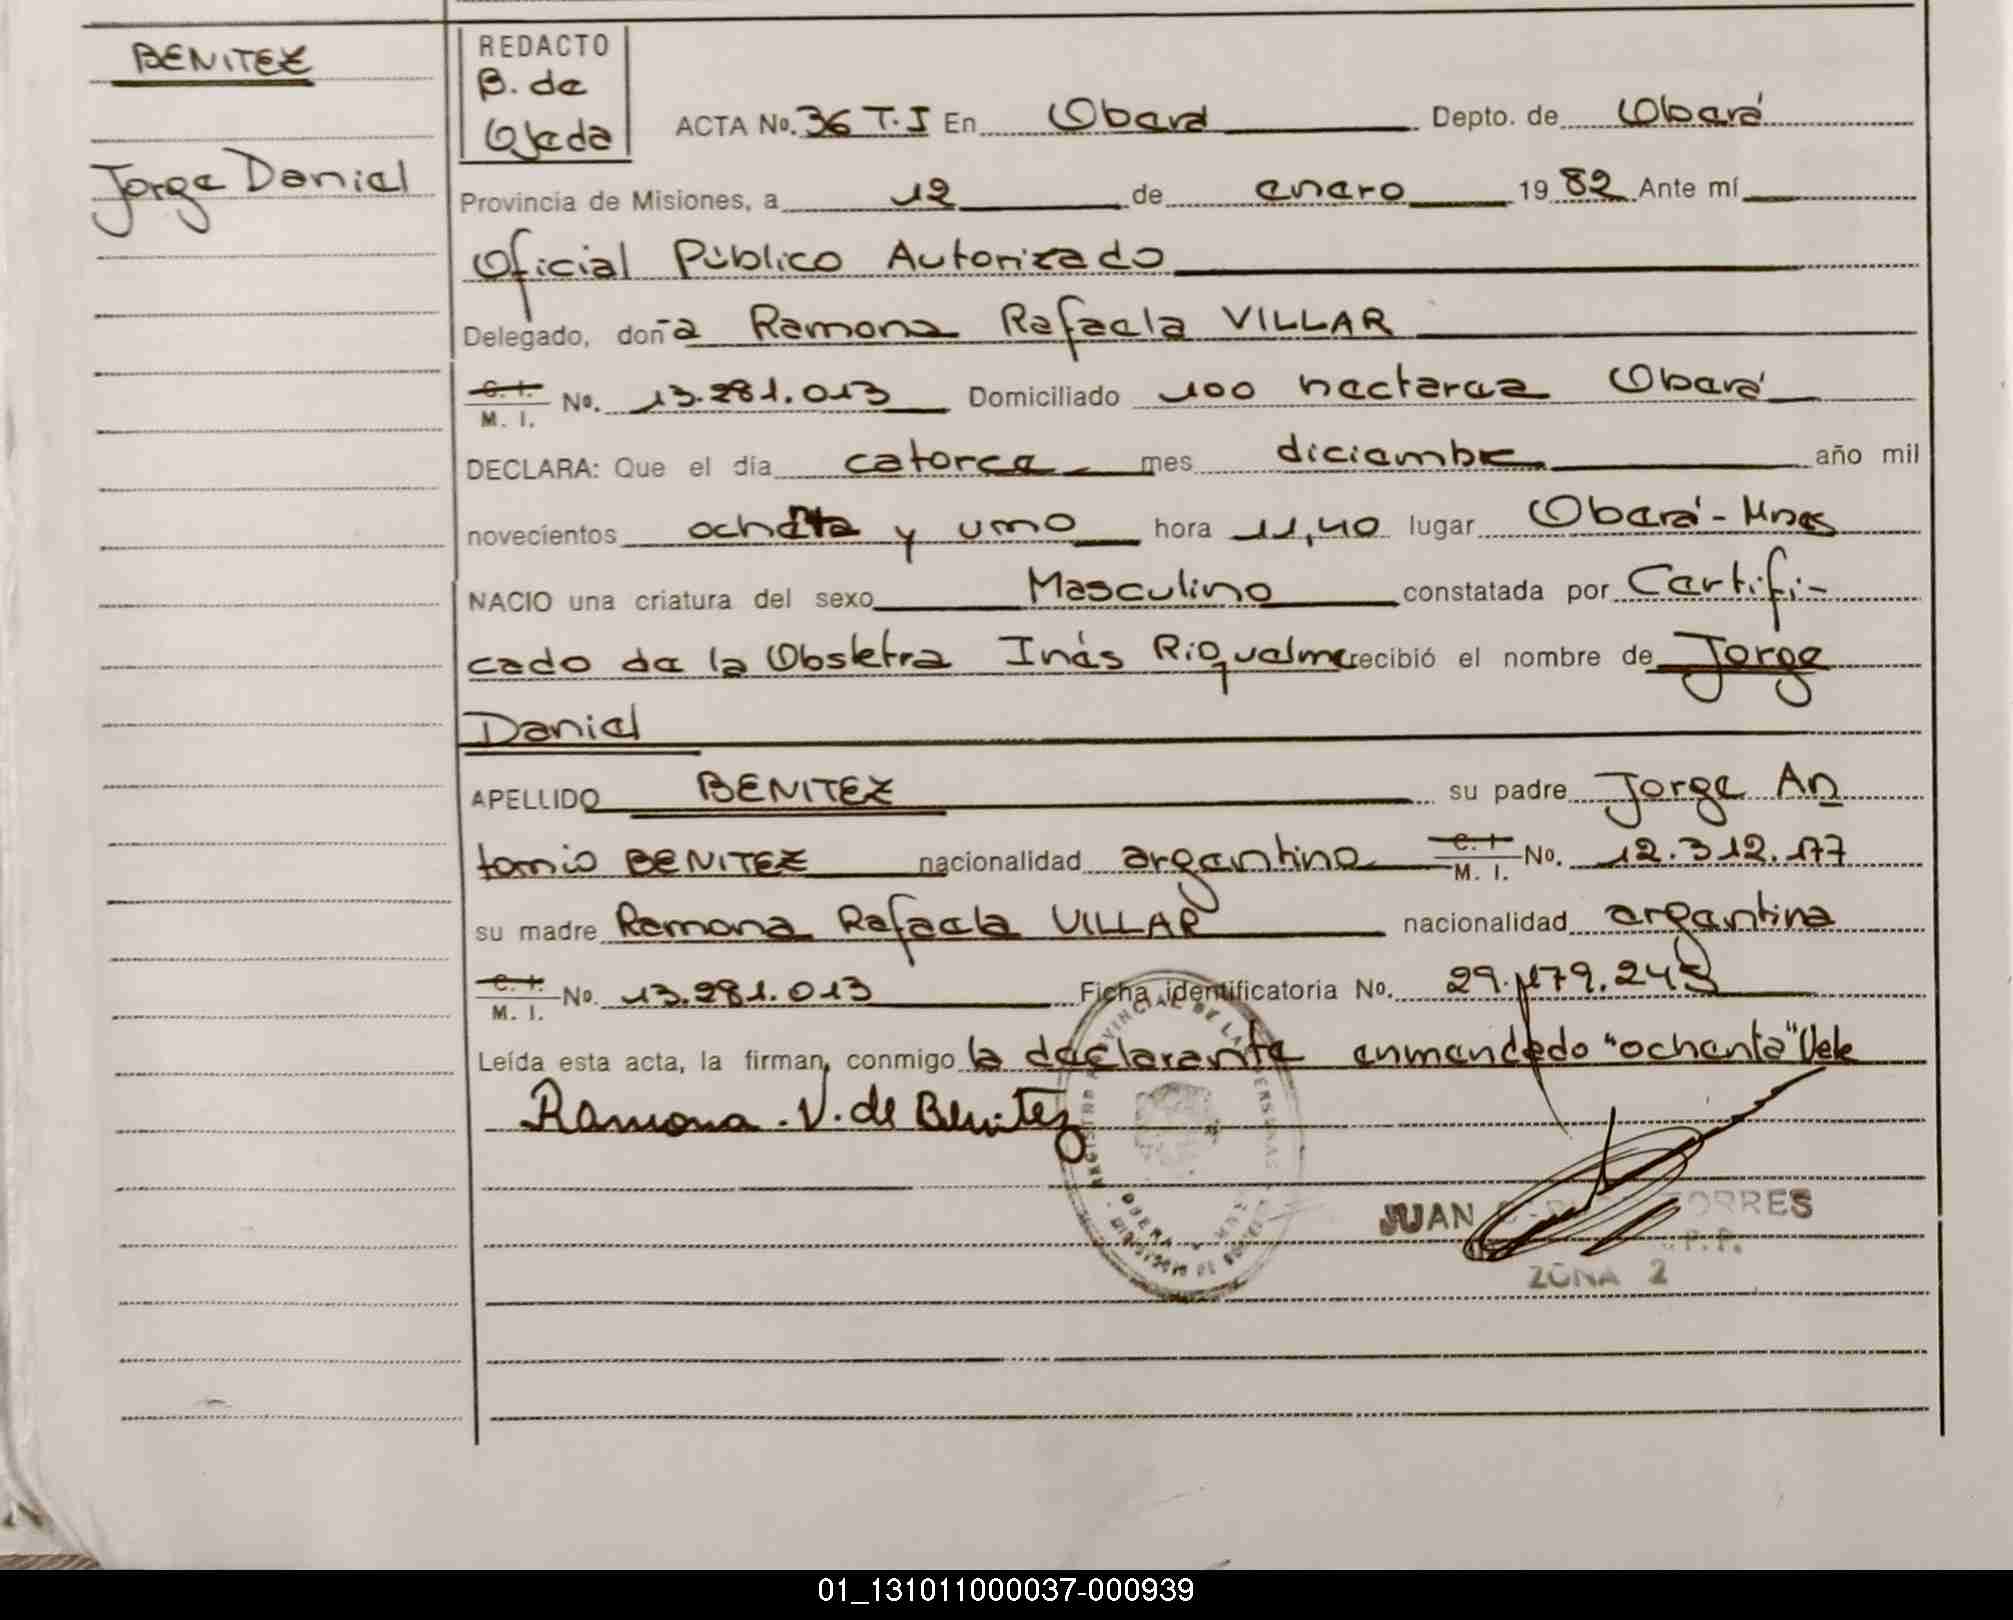 BENITEZ
Jorge Daniel
REDACTO
B. de
Ojeda
ACTA No. 36 T.I En Oberá Depto. de Oberá
Provincia de Misiones, a 12 de enero 19 82 Ante mí
Oficial Público Autorizado
Delegado, doña Ramona Rafaela VILLAR
C. I. / M. I. No. 13.281.013 Domiciliado 100 hectarea Oberá
DECLARA: Que el día catorce mes diciembre año mil
novecientos ochenta y uno hora 11,40 lugar Oberá - Mnes
NACIO una criatura del sexo Masculino constatada por Certifi-
cado de la Obstetra Inés Riquelme recibió el nombre de Jorge
Daniel
APELLIDO BENITEZ su padre Jorge An
tonio BENITEZ nacionalidad argentino C. I / M. I. No. 12.312.177
su madre Ramona Rafaela VILLAR nacionalidad argentina
C. I. / M. I. No. 13.281.013 Ficha identificatoria No. 29.179.245
Leída esta acta, la firman, conmigo la declarante enmendado "ochenta" Vale
Ramona. V. de Benitez
JUAN TORRES
ZONA 2
01_131011000037-000939